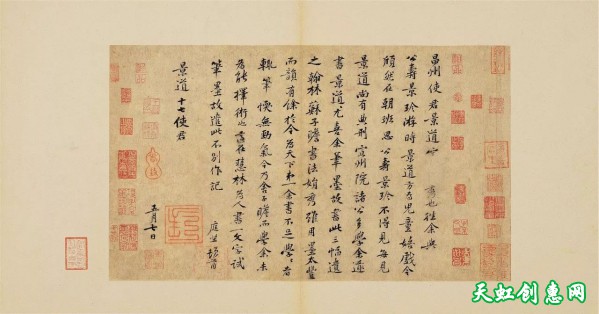 昌州使君景道宗秀也往余與
公壽景珍游時景道方為兒童嬉戲今
頎然在朝班思公壽景珍不得見每見
景道尚有典刑宣州院諸公多學余
書景道尤喜余筆墨故書此三幅遺
之翰林蘇子瞻書法娟秀雖用墨太豐
而韻有餘於今為天下第一余書不足學學者
輒筆愞無勁氣今乃舍子瞻而學余未
為能擇術也適在慧林為人書一文字試
筆墨故遣此不別作記
庭堅頓首
景道十七使君
五月七日
天虹创惠网